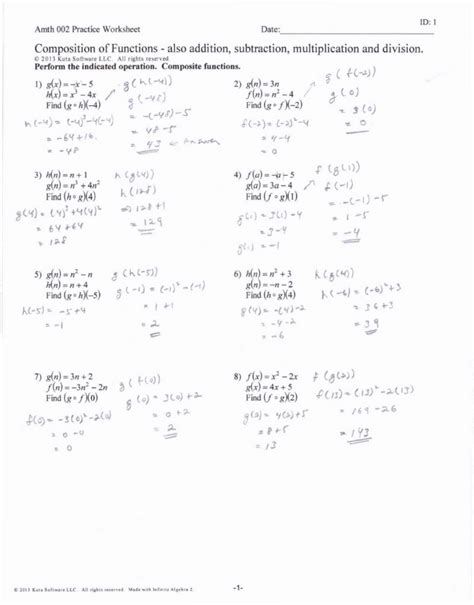 ID: 1
Amth 002 Practice Worksheet Date:
Composition of Functions - also addition, subtraction, multiplication and division.
© 2013 Kuta Software LLC. All rights reserved.
Perform the indicated operation. Composite functions.
1) g(x) = -x - 5
h(x) = x³ - 4x
Find (g ∘ h)(-4)
g(h(-4))
h(-4) = (-4)³-4(-4)
= -64+16
= -48
g(-48)
= -(-48)-5
= 48-5
= 43 ← Answer
2) g(n) = 3n
f(n) = n² - 4
Find (g ∘ f)(-2)
g(f(-2))
f(-2) = (-2)²-4
= 4-4
= 0
g(0)
= 3(0)
= 0
3) h(n) = n + 1
g(n) = n³ + 4n²
Find (h ∘ g)(4)
h(g(4))
g(4) = (4)³+4(4)²
= 64+64
= 128
h(128)
⇒ 128+1
= 129
4) f(a) = -a - 5
g(a) = 3a - 4
Find (f ∘ g)(1)
f(g(1))
g(1) = 3(1)-4
= 3-4
g(1) = -1
f(-1)
= -(-1)-5
= 1-5
= -4
5) g(n) = n² - n
h(n) = n + 4
Find (g ∘ h)(-5)
g(h(-5))
h(-5) = -5+4
= -1
g(-1) = (-1)²-(-1)
= 1+1
= 2
6) h(n) = n² + 3
g(n) = -n - 2
Find (h ∘ g)(4)
h(g(4))
g(4) = -4-2
= -6
h(-6) = (-6)²+3
= 36+3
= 39
7) g(n) = 3n + 2
f(n) = -3n² - 2n
Find (g ∘ f)(0)
g(f(0))
f(0) = -3(0)²-2(0)
= 0-0
= 0
g(0) = 3(0)+2
= 0+2
= 2
8) f(x) = x² - 2x
g(x) = 4x + 5
Find (f ∘ g)(2)
f(g(2))
g(2) = 4(2)+5
= 8+5
= 13
f(13) = (13)²-2(13)
= 169-26
= 143
© 2013 Kuta Software LLC. All rights reserved. Made with Infinite Algebra 2.
-1-